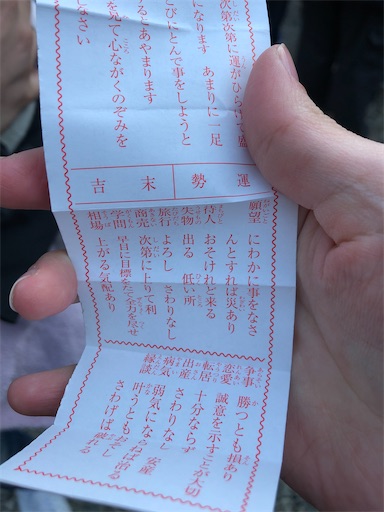 次第次第に運がひらけて盛
になります あまりに一足
とびにとんで事をしようと
るとあやまります
を見て心ながくのぞみを
さい
運勢
末吉
願望 にわかに事をなさ
んとすれば災あり
待人 おそけれど来る
失物 出る 低い所
旅行 よろし さわりなし
商売 次第に上りて利
学問 早目に目標たて全力を尽せ
相場 上がる気配あり
争事 勝つとも損あり
恋愛 誠意を示すことが大切
転居 十分ならず
出産 さわりなし 安産
病気 弱気にならねば治る
縁談 叶うとも
さわげば破れる